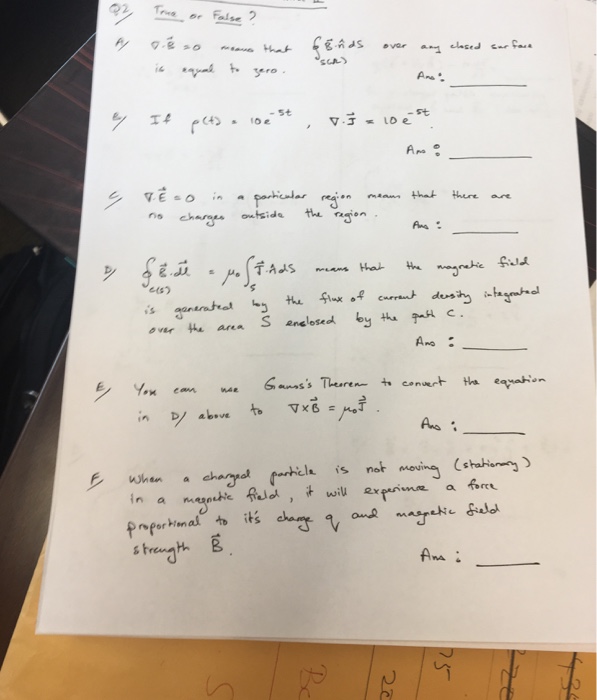 Q2 True or False?
A) ∇·B⃗ = 0 means that ∮ B⃗·n̂ dS over any closed surface
S(R)
is equal to zero.
Ans: ______
B) If ρ(t) = 10e^-5t , ∇·J⃗ = 10e^-5t
Ans: ______
C) ∇·E⃗ = 0 in a particular region means that there are
no charges outside the region.
Ans: ______
D) ∮ B⃗·dl⃗ = μ₀∫ J⃗·n̂dS means that the magnetic field
C(S) S
is generated by the flux of current density integrated
over the area S enclosed by the path C.
Ans: ______
E) You can use Gauss's Theorem to convert the equation
in D) above to ∇×B⃗ = μ₀J⃗.
Ans: ______
F) When a charged particle is not moving (stationary)
in a magnetic field, it will experience a force
proportional to it's charge q and magnetic field
strength B⃗.
Ans: ______